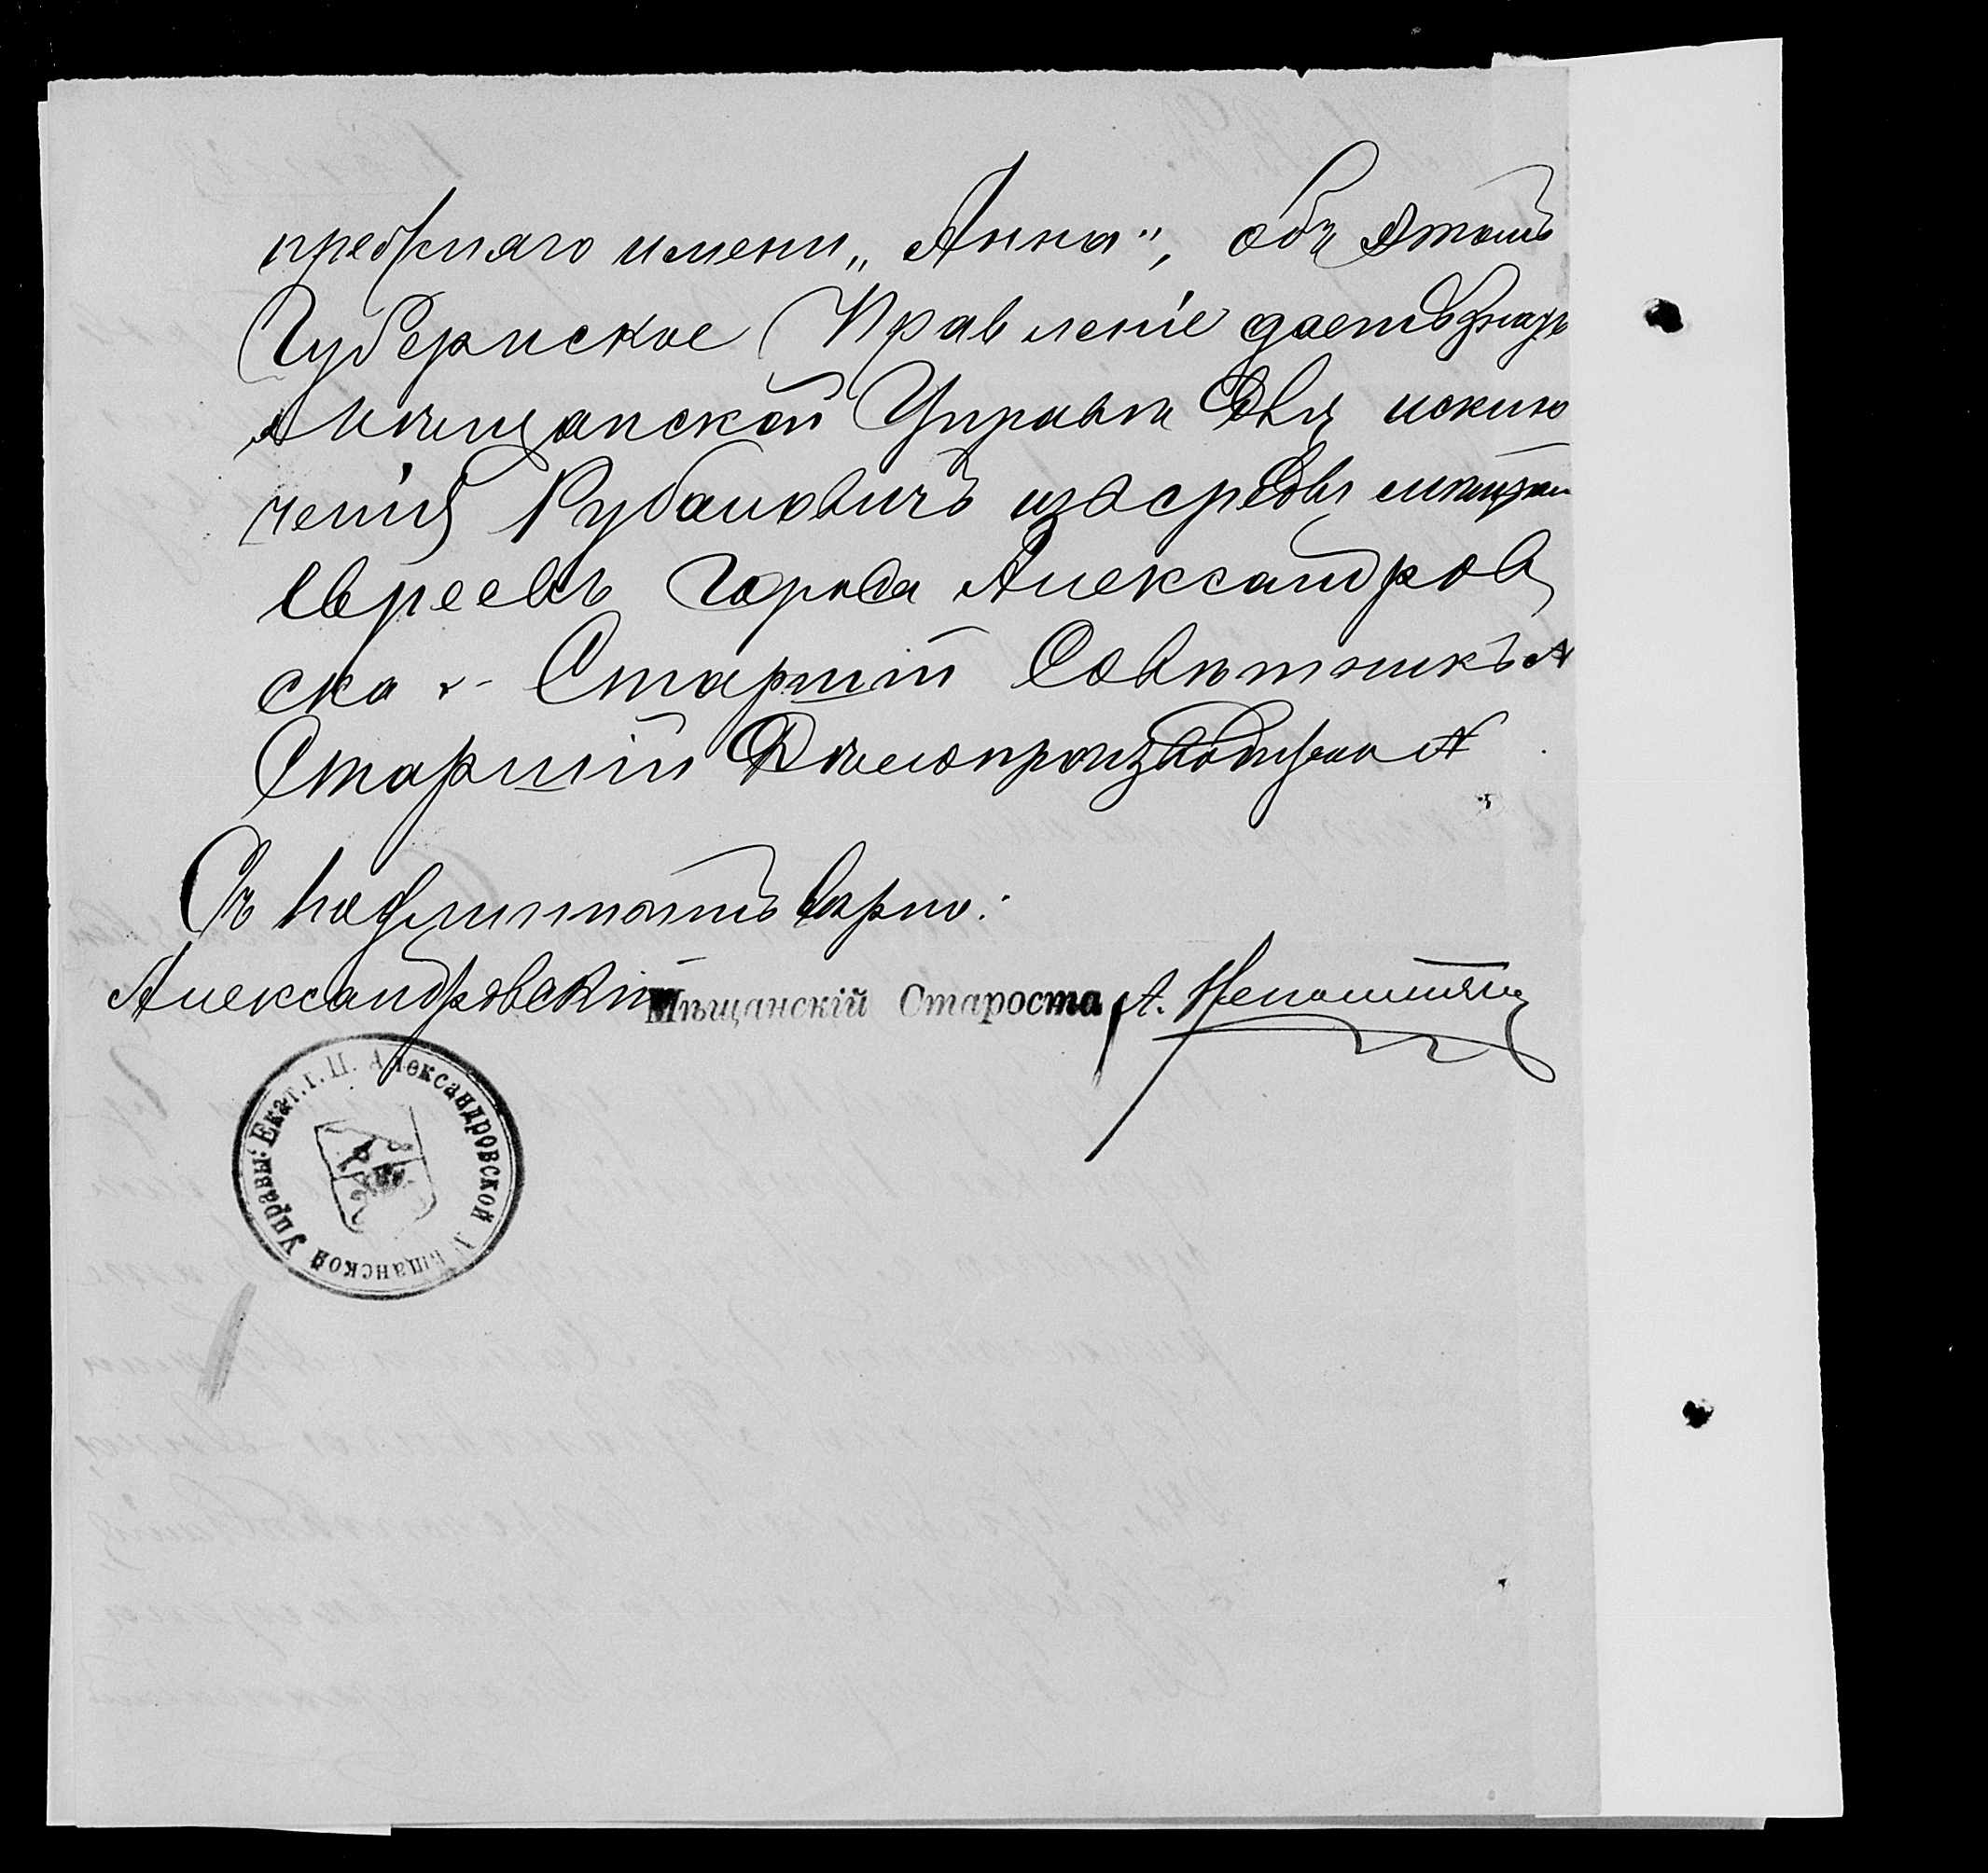 прежняго имени „Анна", объ этомъ
Губернское Правленіе даетъ знать
Мѣщанской Управѣ для исклю
ченія Рубановичъ изъ среды мѣщан
евреевъ города Александров
ска. Старшій Совѣтникъ
Старшій Дѣлопроизводитель
Съ подлиннымъ вѣрно:
Александровскій Мѣщанскій Староста А.
Екат. г. П. Александровской Мѣщанской Управы